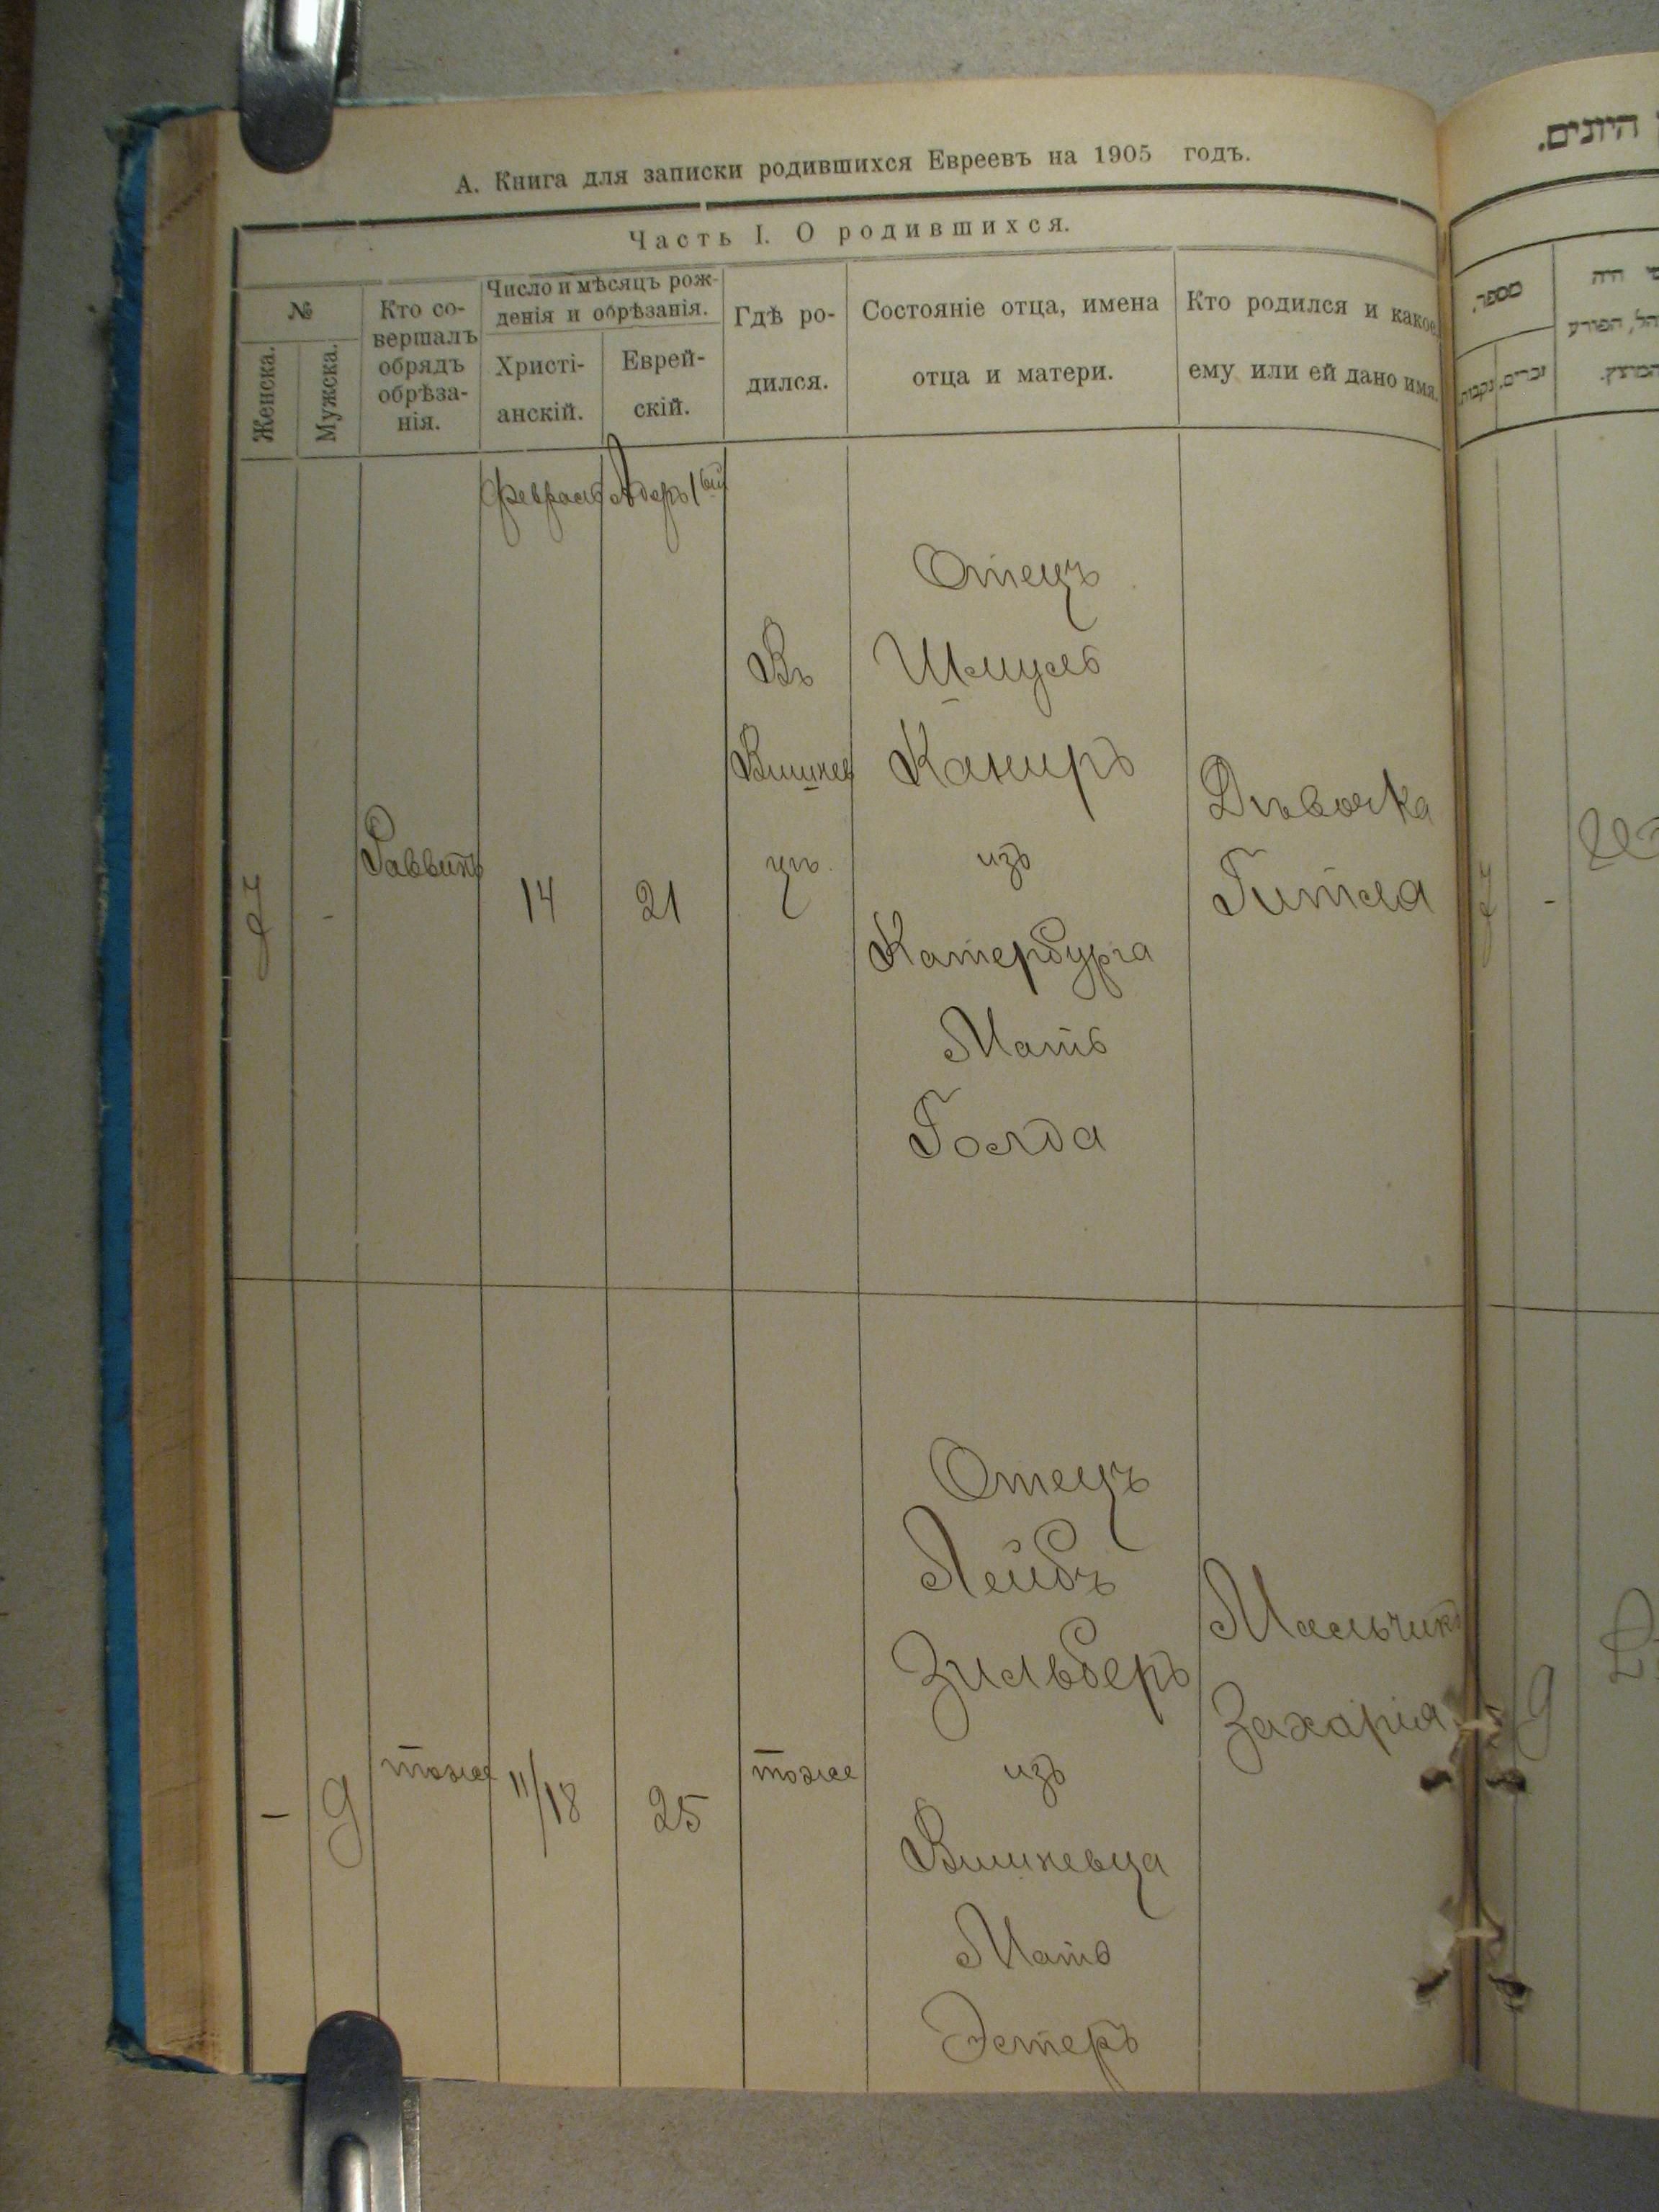 А. Книга для записки родившихся Евреевъ на 1905 годъ.
Часть I. О родившихся.
№
Женска.
Мужска.
Кто со-
вершалъ
обрядъ
обрѣза-
нія.
Число и мѣсяцъ рож-
денія и обрѣзанія.
Христі-
анскій.
Еврей-
скій.
Гдѣ ро-
дился.
Состояніе отца, имена
отца и матери.
Кто родился и какое
ему или ей дано имя.
февраль
Адаръ 1ый
-
Раввинъ
14
21
Въ
Вишнев
цѣ
Отецъ
Шмуль
Каниръ
изъ
Катербурга
Мать
Голда
Дѣвочка
Гитля
-
9
тоже
11/18
25
тоже
Отецъ
Лейбъ
Зильберъ
изъ
Вишневца
Мать
Эстеръ
Мальчикъ
Захарія
היונים.
מספר.
זכרים.
נקבות.
-
9